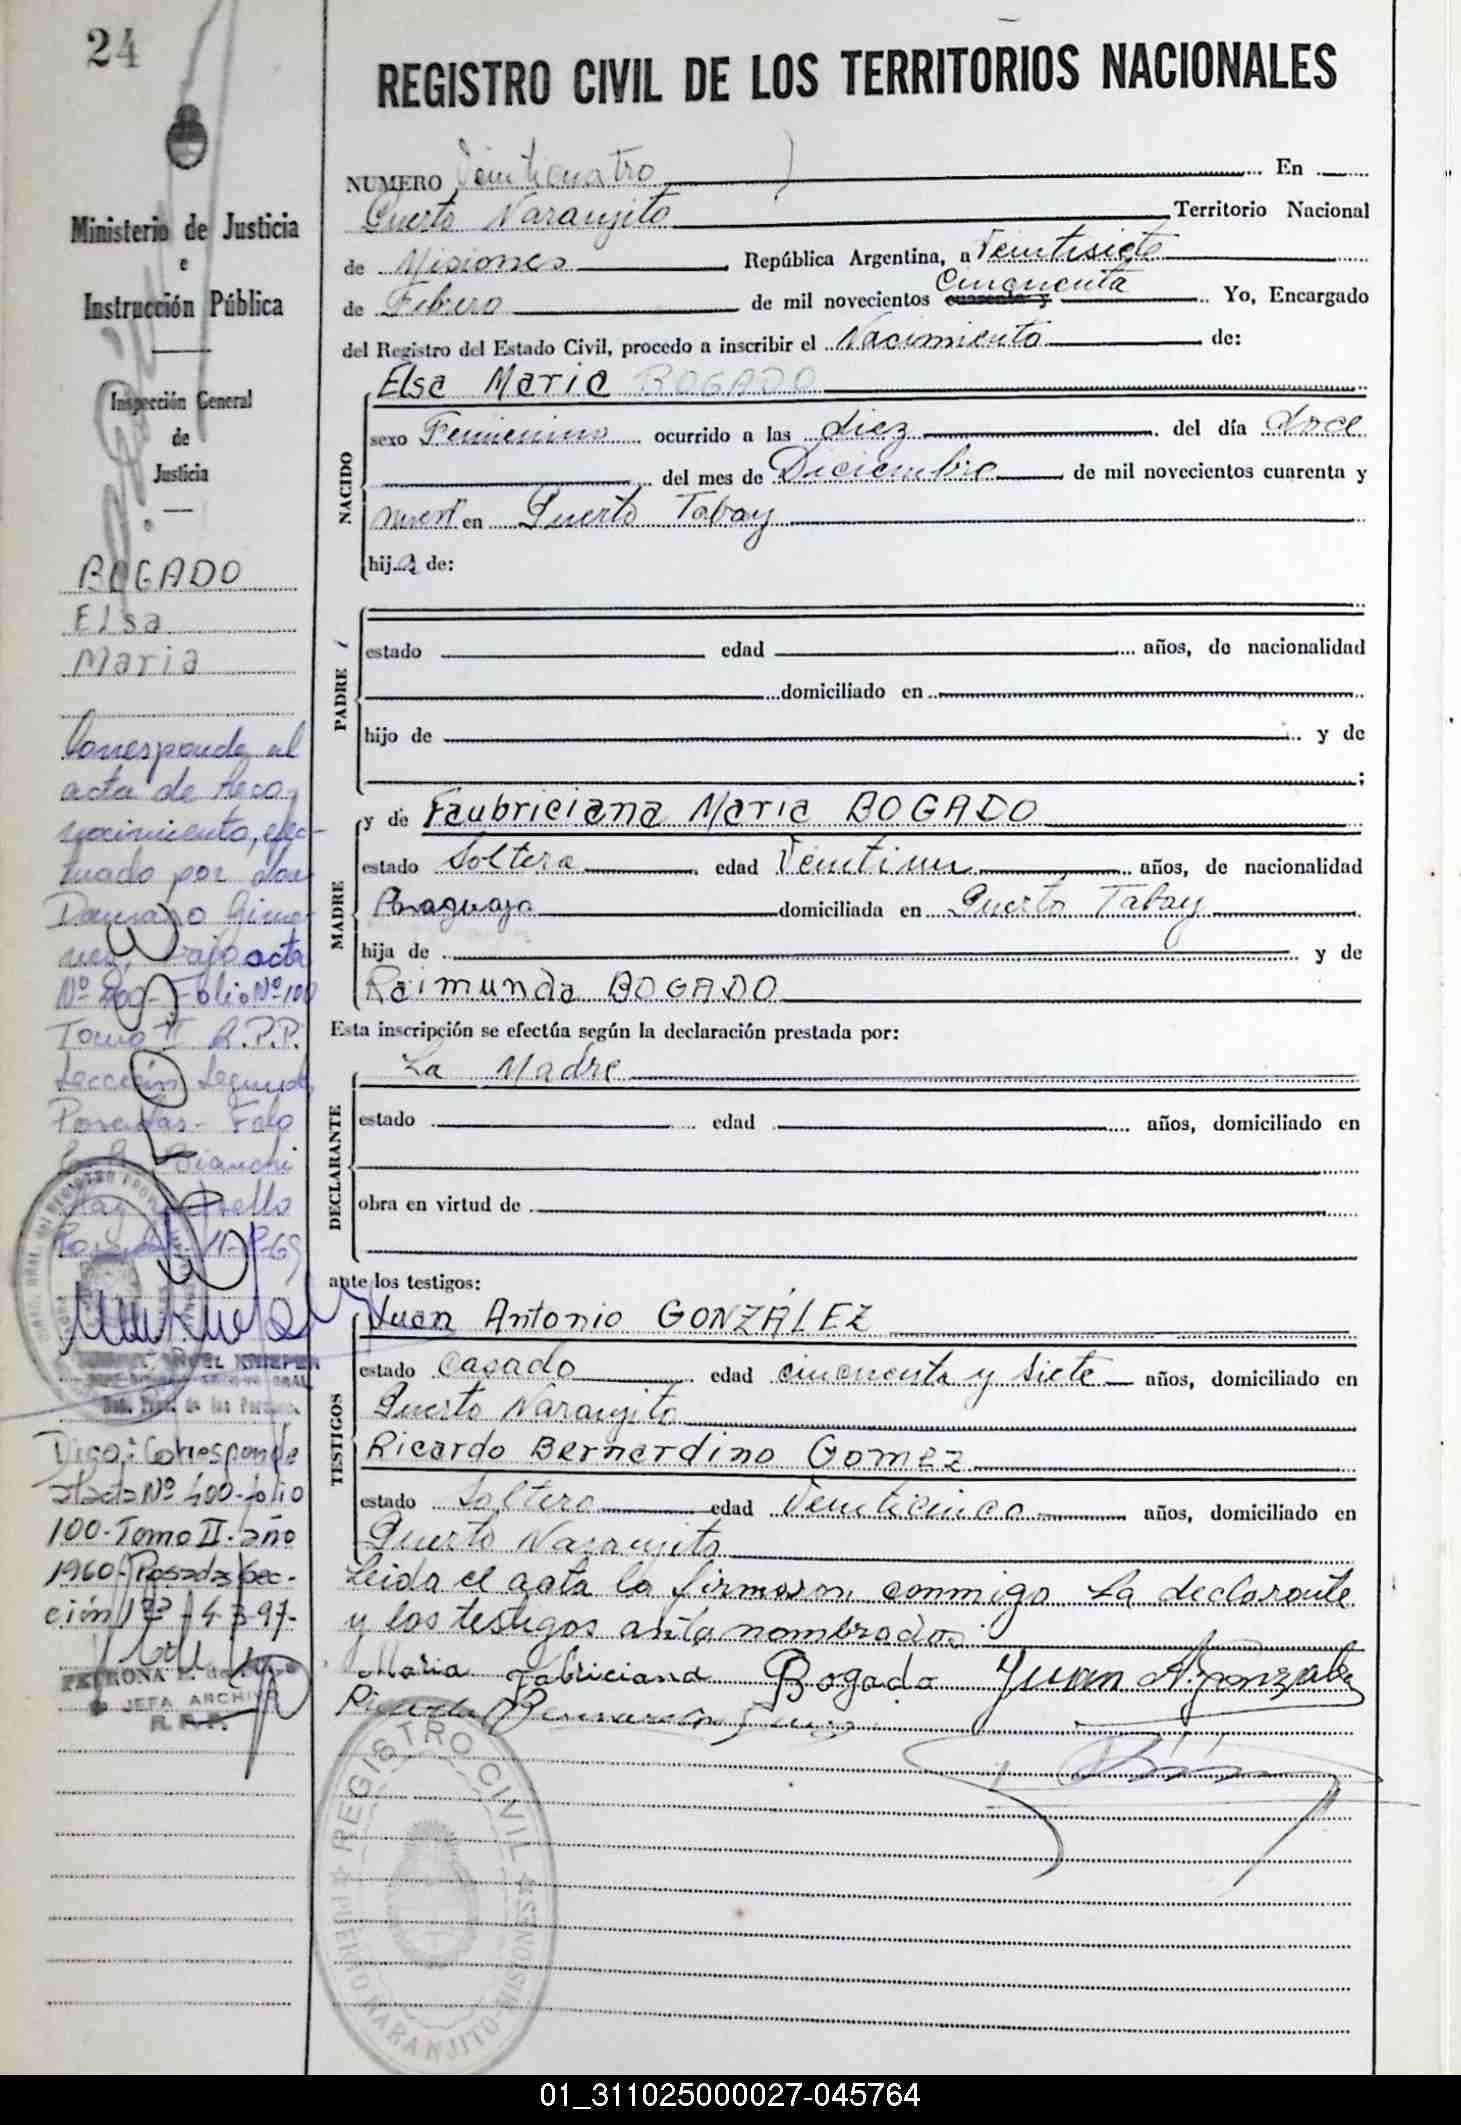 24
REGISTRO CIVIL DE LOS TERRITORIOS NACIONALES
Ministerio de Justicia
e
Instrucción Pública
Inspección General
de
Justicia
BOGADO
Elsa
Maria
Corresponde al
acta de Reco
nocimiento, efec-
tuado por don
Damacio Gime
nez, bajo acta
Nº 400- Folio Nº 100
Tomo II R.P.P.
Sección Segunda
Posadas-
Bianchi
11-8-69
Digo: Corresponde
al acta Nº 400-folio
100-Tomo II-año
1960-Posadas Sec-
ción 1ª
PETRONA
JEFA ARCHIVO
R.P.P.
NUMERO Veinticuatro En
Puerto Naranjito Territorio Nacional
de Misiones República Argentina, a Veintisiete
de Febrero de mil novecientos cuarenta y Cincuenta Yo, Encargado
del Registro del Estado Civil, procedo a inscribir el Nacimiento de:
NACIDO
Elsa Maria BOGADO
sexo Femenino ocurrido a las diez del día doce
del mes de Diciembre de mil novecientos cuarenta y
nueve en Puerto Tabay
hija de:
PADRE
estado edad años, de nacionalidad
domiciliado en
hijo de y de
;
MADRE
y de Faubriciana Maria BOGADO
estado Soltera edad Veintiun años, de nacionalidad
Paraguaya domiciliada en Puerto Tabay
hija de y de
Raimunda BOGADO
Esta inscripción se efectúa según la declaración prestada por:
DECLARANTE
La Madre
estado edad años, domiciliado en
obra en virtud de
ante los testigos:
TESTIGOS
Juan Antonio GONZÁLEZ
estado Casado edad cincuenta y siete años, domiciliado en
Puerto Naranjito
Ricardo Bernardino GOMEZ
estado Soltero edad Veinticinco años, domiciliado en
Puerto Naranjito
Leida el acta la firmaron conmigo la declarante
y los testigos ante nombrados
Maria Fabriciana Bogado Juan A. Gonzalez
REGISTRO CIVIL
PUERTO NARANJITO-MISIONES
01_311025000027-045764